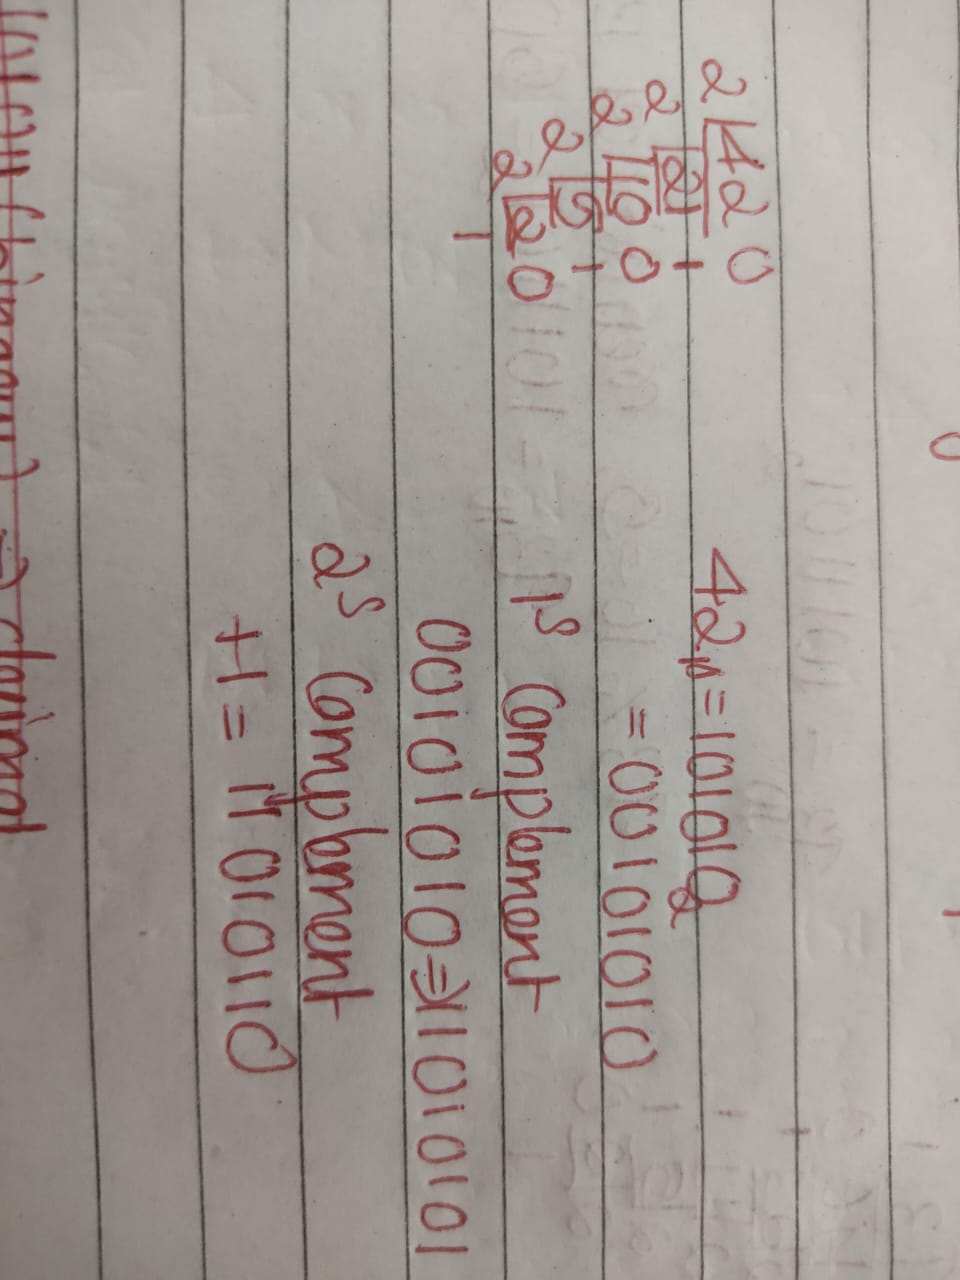 2 42 0
2 21 1
2 10 0
2 5 1
2 2 0
1
42₁₀ = 101010₂
= 00101010
1ˢ Complement
00101010 => 11010101
2ˢ Complement
+1 = 11010110